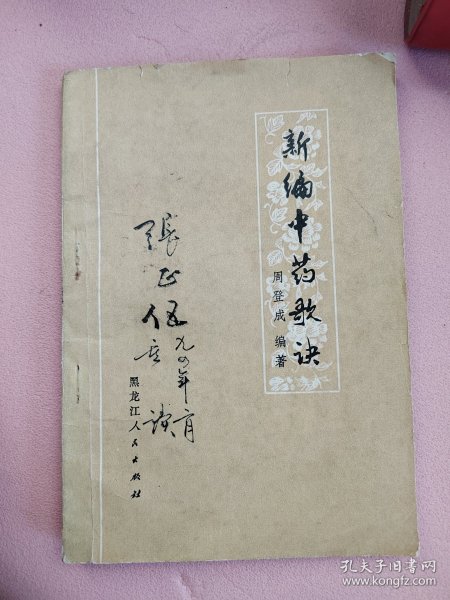 新编中药歌诀
周登成 编著
張正伍
九〇年
读
黑龙江人民出版社
孔夫子旧书网
www.kongfz.com